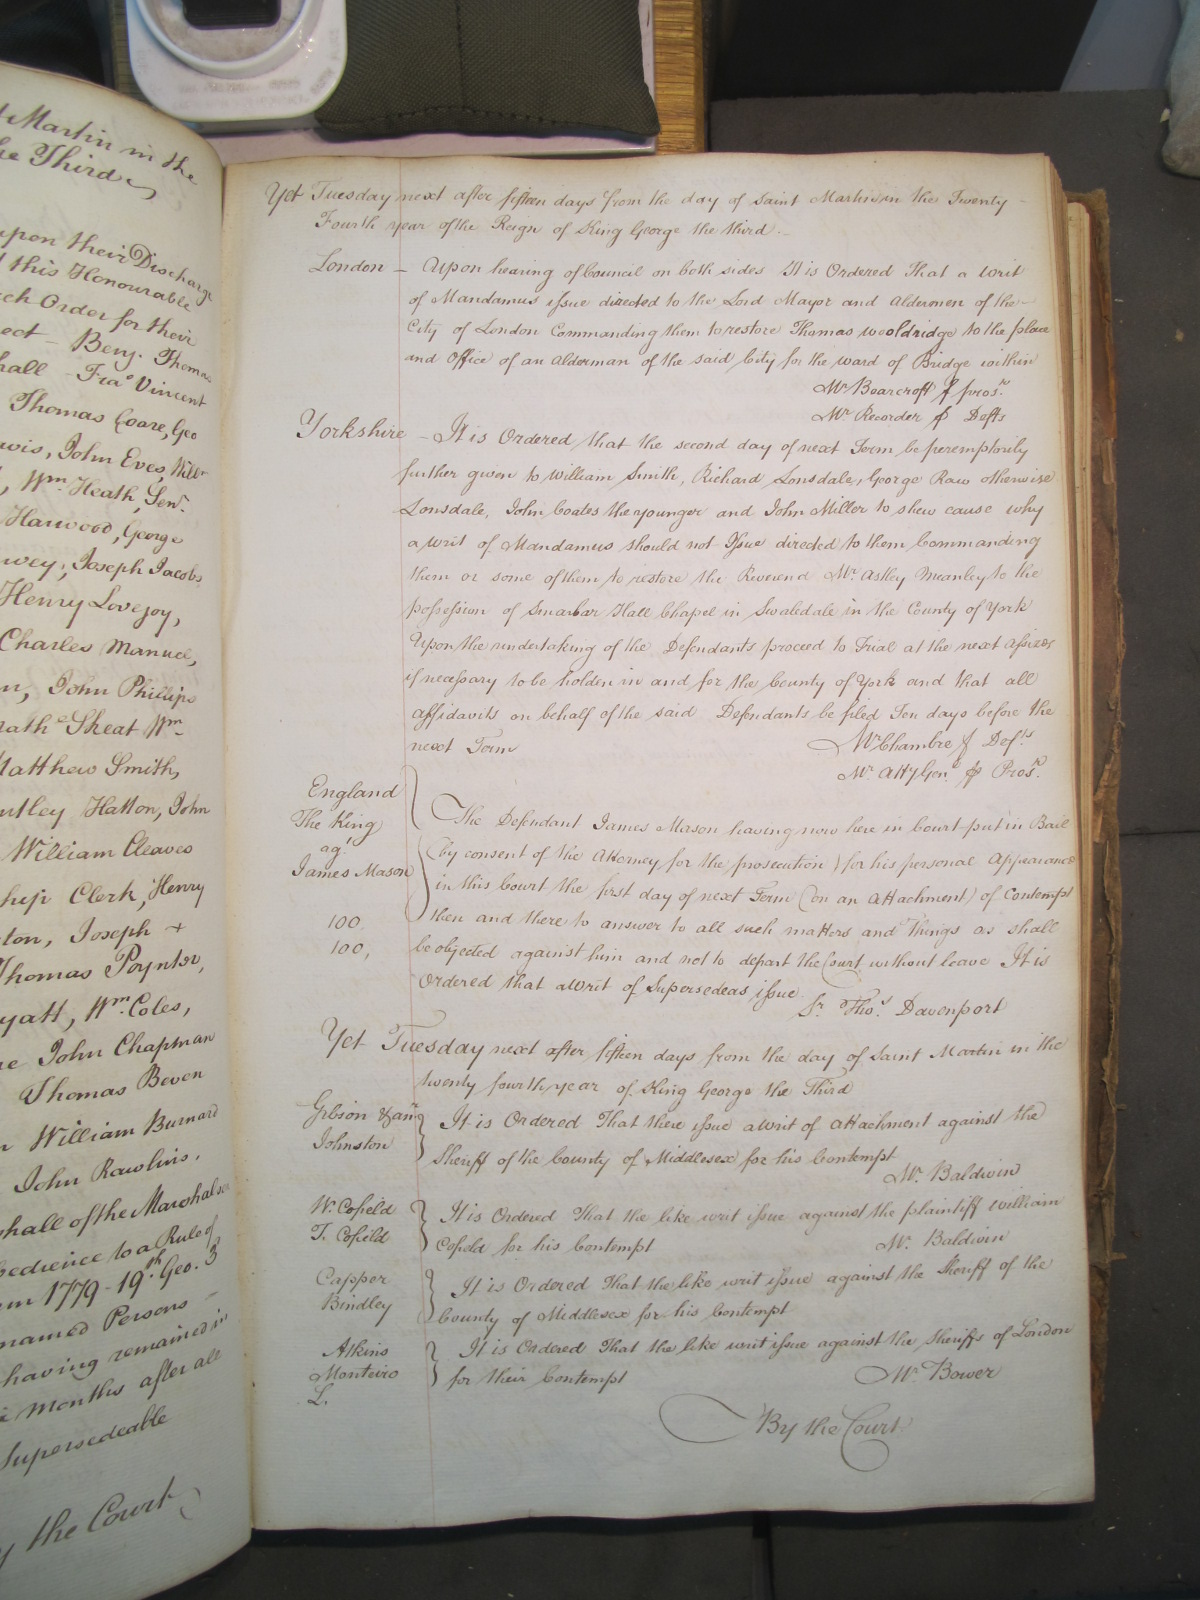 Martin in the
he Third
upon their Discharge
this Honourable
ch Order for their
ect - Benj. Thomas
hall - Fra.s Vincent
Thomas Coare, Geo
wis, John Eves, Will.m
Wm. Heath, Senr.
Harwood, George
wey, Joseph Jacobs,
Henry Lovejoy,
Charles Manuel,
n, John Phillips
Skeat Wm.
Matthew Smith,
Hatton, John
William Cleaves
Clerk, Henry
ton, Joseph +
Thomas Poynter,
yatt, Wm. Coles,
re John Chapman
Thomas Beven
William Burnard
John Rawlins.
shall of the Marshalsea
bedience to a Rule of
m 1779 - 19th Geo. 3d
named Persons -
having remained in
months after all
Supersedeable
y the Court
Yet Tuesday next after fifteen days from the day of Saint Martin in the Twenty -
Fourth year of the Reign of King George the third. -
London - Upon hearing of Council on both sides It is Ordered That a writ
of Mandamus issue directed to the Lord Mayor and Aldermen of the -
City of London Commanding them to restore Thomas Wooldridge to the place
and Office of an Alderman of the said City for the ward of Bridge within
Mr. Bearcroft for pros.r
Mr. Recorder for Defts
Yorkshire - It is Ordered that the second day of next Term be peremptorily
further given to William Smith, Richard Lonsdale, George Raw otherwise
Lonsdale, John Coates the younger and John Miller to shew cause why
a writ of Mandamus should not Issue directed to them Commanding
them or some of them to restore the Reverend Mr. Astley Meanley to the
possession of Smarbar Hall Chapel in Swaledale in the County of York
Upon the undertaking of the Defendants proceed to Trial at the next Assizes
if necessary to be holden in and for the County of York and that all
affidavits on behalf of the said Defendants be filed Ten days before the
next Term
Mr. Chambre for Def.ts
Mr. Atty Gen.l for Pros.r
England
The King
ag.
James Mason
100
100,
The Defendant James Mason having now here in Court put in Bail
(by consent of the Attorney for the prosecution) for his personal Appearance
in this Court the first day of next Term (on an Attachment) of Contempt
then and there to answer to all such matters and Things as shall
be objected against him and not to depart the Court without leave It is
Ordered that a Writ of Supersedeas issue
Sr. Tho.s Davenport
Yet Tuesday next after fifteen days from the day of Saint Martin in the
twenty fourth year of King George the Third
Gibson & an.r
Johnston
It is Ordered That there issue a Writ of Attachment against the
Sheriff of the County of Middlesex for his Contempt
Mr. Baldwin
W. Cofield
T. Cofield
It is Ordered That the like writ issue against the plaintiff William
Cofield for his Contempt
Mr. Baldwin
Capper
Brindley
It is Ordered That the like writ issue against the Sheriff of the
County of Middlesex for his Contempt
Atkins
Monteiro
L.
It is Ordered That the like writ issue against the Sheriffs of London
for their Contempt
Mr. Bower
By the Court